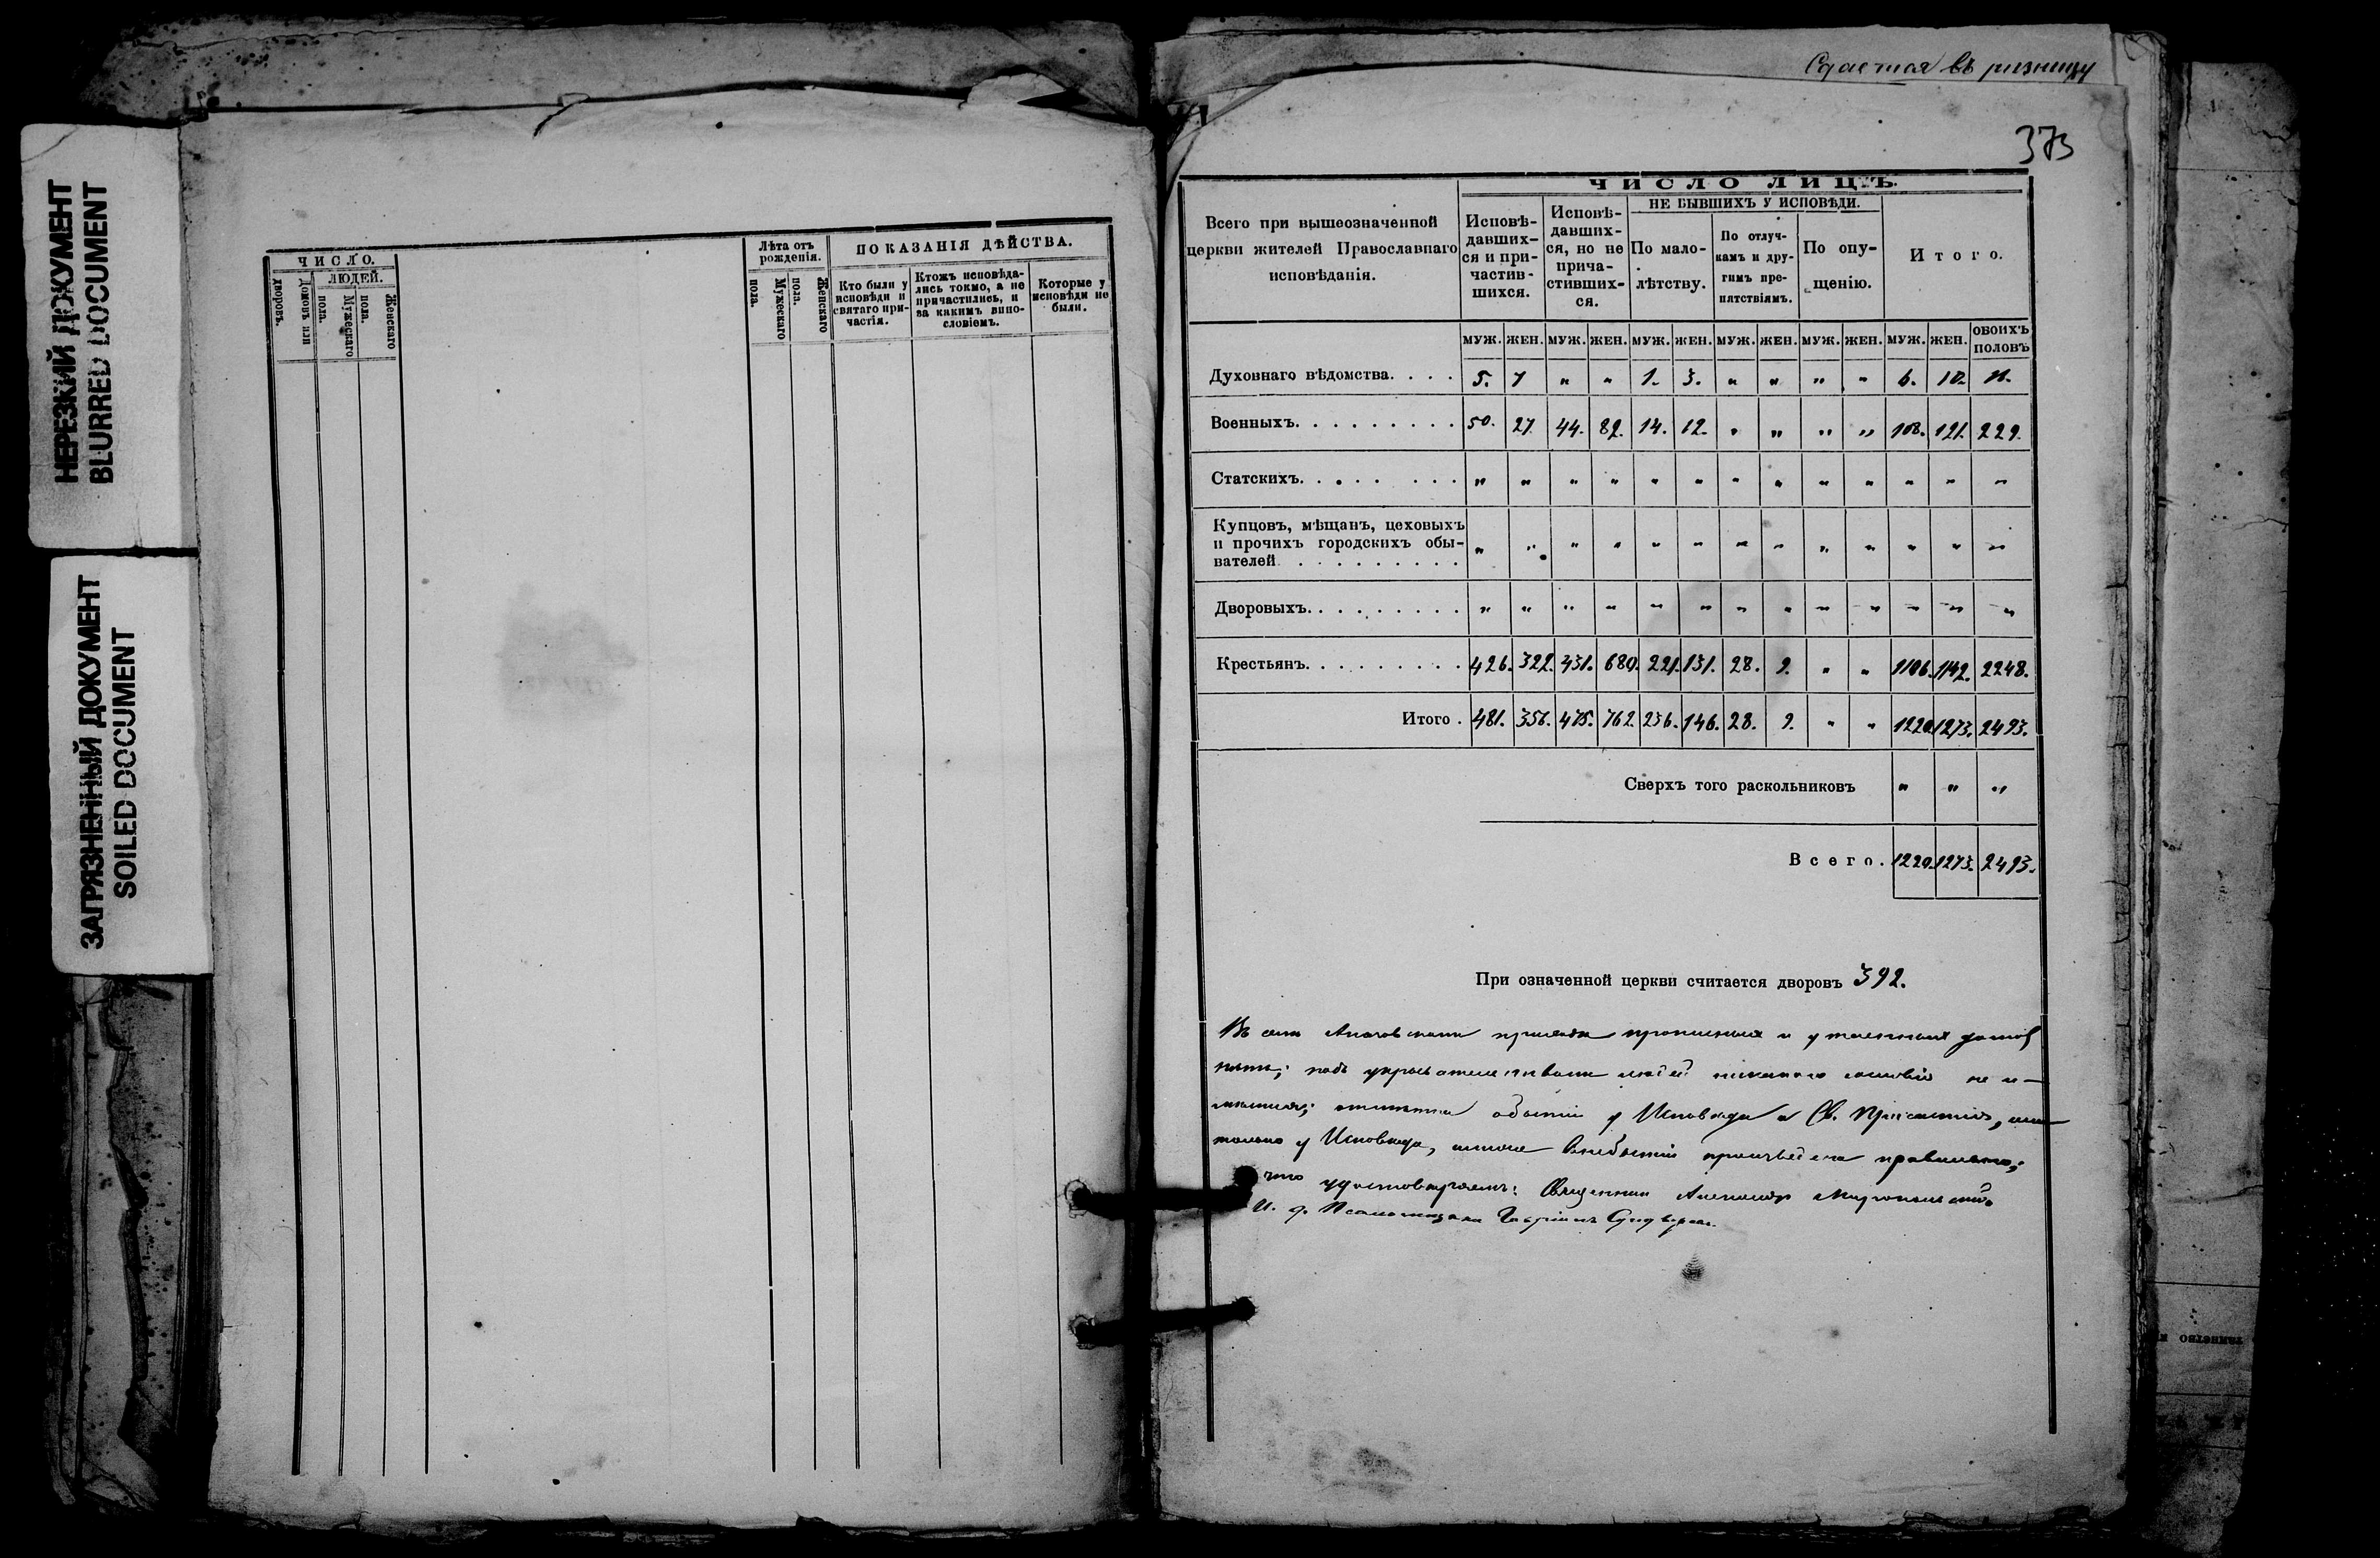 НЕРЕЗКИЙ ДОКУМЕНТ
BLURRED DOCUMENT
ЗАГРЯЗНЕННЫЙ ДОКУМЕНТ
SOILED DOCUMENT
ЧИСЛО.
Домовъ или дворовъ.
ЛЮДЕЙ.
Мужескаго пола.
Женскаго пола.
Лѣта отъ рожденія.
Мужескаго пола.
Женскаго пола.
ПОКАЗАНІЯ ДѢЙСТВА.
Кто были у исповѣди и святаго при-частія.
Ктожъ исповѣда-лись токмо, а не причастились, и за какимъ вино-словіемъ.
Которые у исповѣди не были.
Сдается въ ризницу
373
ЧИСЛО ЛИЦЪ.
Всего при вышеозначенной
церкви жителей Православнаго
исповѣданія.
Исповѣ-давших-ся и при-частив-шихся.
Исповѣ-давших-ся, но не прича-стивших-ся.
НЕ БЫВШИХЪ У ИСПОВѢДИ.
По мало-лѣтству.
По отлуч-камъ и дру-гимъ пре-пятствіямъ.
По опу-щенію.
Итого.
МУЖ. ЖЕН. МУЖ. ЖЕН. МУЖ. ЖЕН. МУЖ. ЖЕН. МУЖ. ЖЕН. МУЖ. ЖЕН. ОБОИХЪ ПОЛОВЪ
Духовнаго вѣдомства. . . . 5. 7 „ „ 1. 3. „ „ „ „ 6. 10.
Военныхъ. . . . . . . . . 50. 27. 44. 82. 14. 12. „ „ „ „ 108. 121. 229.
Статскихъ. . . . . . . . „ „ „ „ „ „ „ „ „ „ „ „ „
Купцовъ, мѣщанъ, цеховыхъ
и прочихъ городскихъ обы-
вателей . . . . . . . . . „ „ „ „ „ „ „ „ „ „ „ „ „
Дворовыхъ. . . . . . . . . „ „ „ „ „ „ „ „ „ „ „ „ „
Крестьянъ. . . . . . . . . 426. 322. 431. 680. 221. 131. 28. 9. „ „ 1106. 1142. 2248.
Итого . 481. 356. 475. 762. 236. 146. 28. 9. „ „ 1220. 1273. 2493.
Сверхъ того раскольниковъ „ „ „
Всего. 1220. 1273. 2493.
При означенной церкви считается дворовъ 392.
приходѣ и
людей не и-
у Исповѣди и Св. Причастія,
только у Исповѣди, правильно;
что удостовѣряемъ: Священникъ Александръ
И. д. Псаломщика